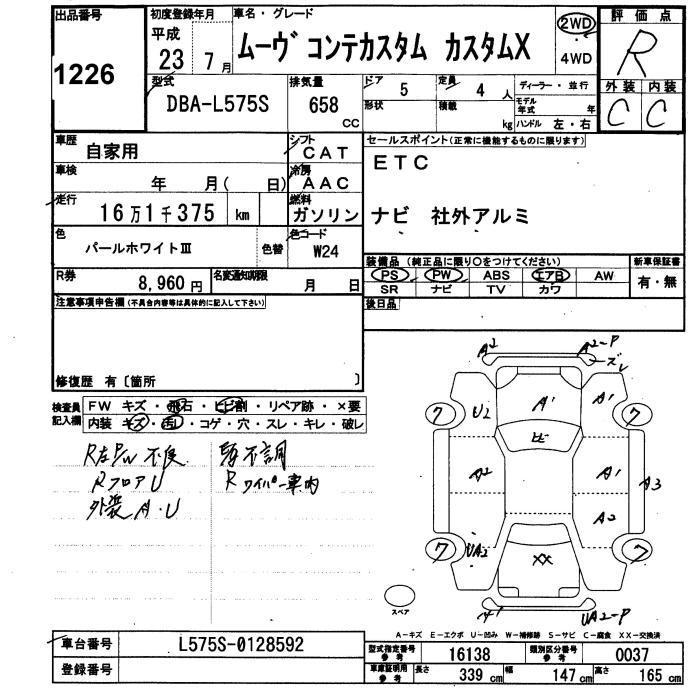 出品番号
1226
初度登録年月
平成
23 7月
車名・グレード
ムーヴ コンテカスタム カスタムX
2WD
・
4WD
評価点
R
型式
DBA-L575S
排気量
658
CC
ドア
5
定員
4 人
ディーラー・並行
形状
積載
kg
モデル年式
年
ハンドル 左・右
外装 内装
C C
車歴
自家用
シフト
CAT
車検
年 月( 日)
冷房
AAC
走行
16万1千375 km
燃料
ガソリン
色
パールホワイトⅢ
色替
色コード
W24
R券
8,960円
名変通知期限
月 日
セールスポイント(正常に機能するものに限ります)
ETC
ナビ 社外アルミ
装備品(純正品に限り○をつけてください)
新車保証書
PS PW ABS エアB AW
有・無
SR ナビ TV カワ
後日品
注意事項申告欄(不具合内容等は具体的に記入して下さい)
修復歴 有〔箇所 〕
検査員
記入欄
FW キズ・飛石・ヒビ割・リペア跡・×要
内装 キズ・汚レ・コゲ・穴・スレ・キレ・破レ
R左PW不良
R フロアU
外装A・U
R ワイパー車内
A2
A2-P
ズレ
U2
A'
A1
7
7
ヒビ
A2
A1
A3
A2
7
UA2
XX
7
A'
UA2-P
スペア
A-キズ E-エクボ U-凹み W-補修跡 S-サビ C-腐食 XX-交換済
車台番号
L575S-0128592
登録番号
型式指定番号
参考
16138
類別区分番号
参考
0037
車庫証明用
参考
長さ
339 cm
幅
147 cm
高さ
165 cm